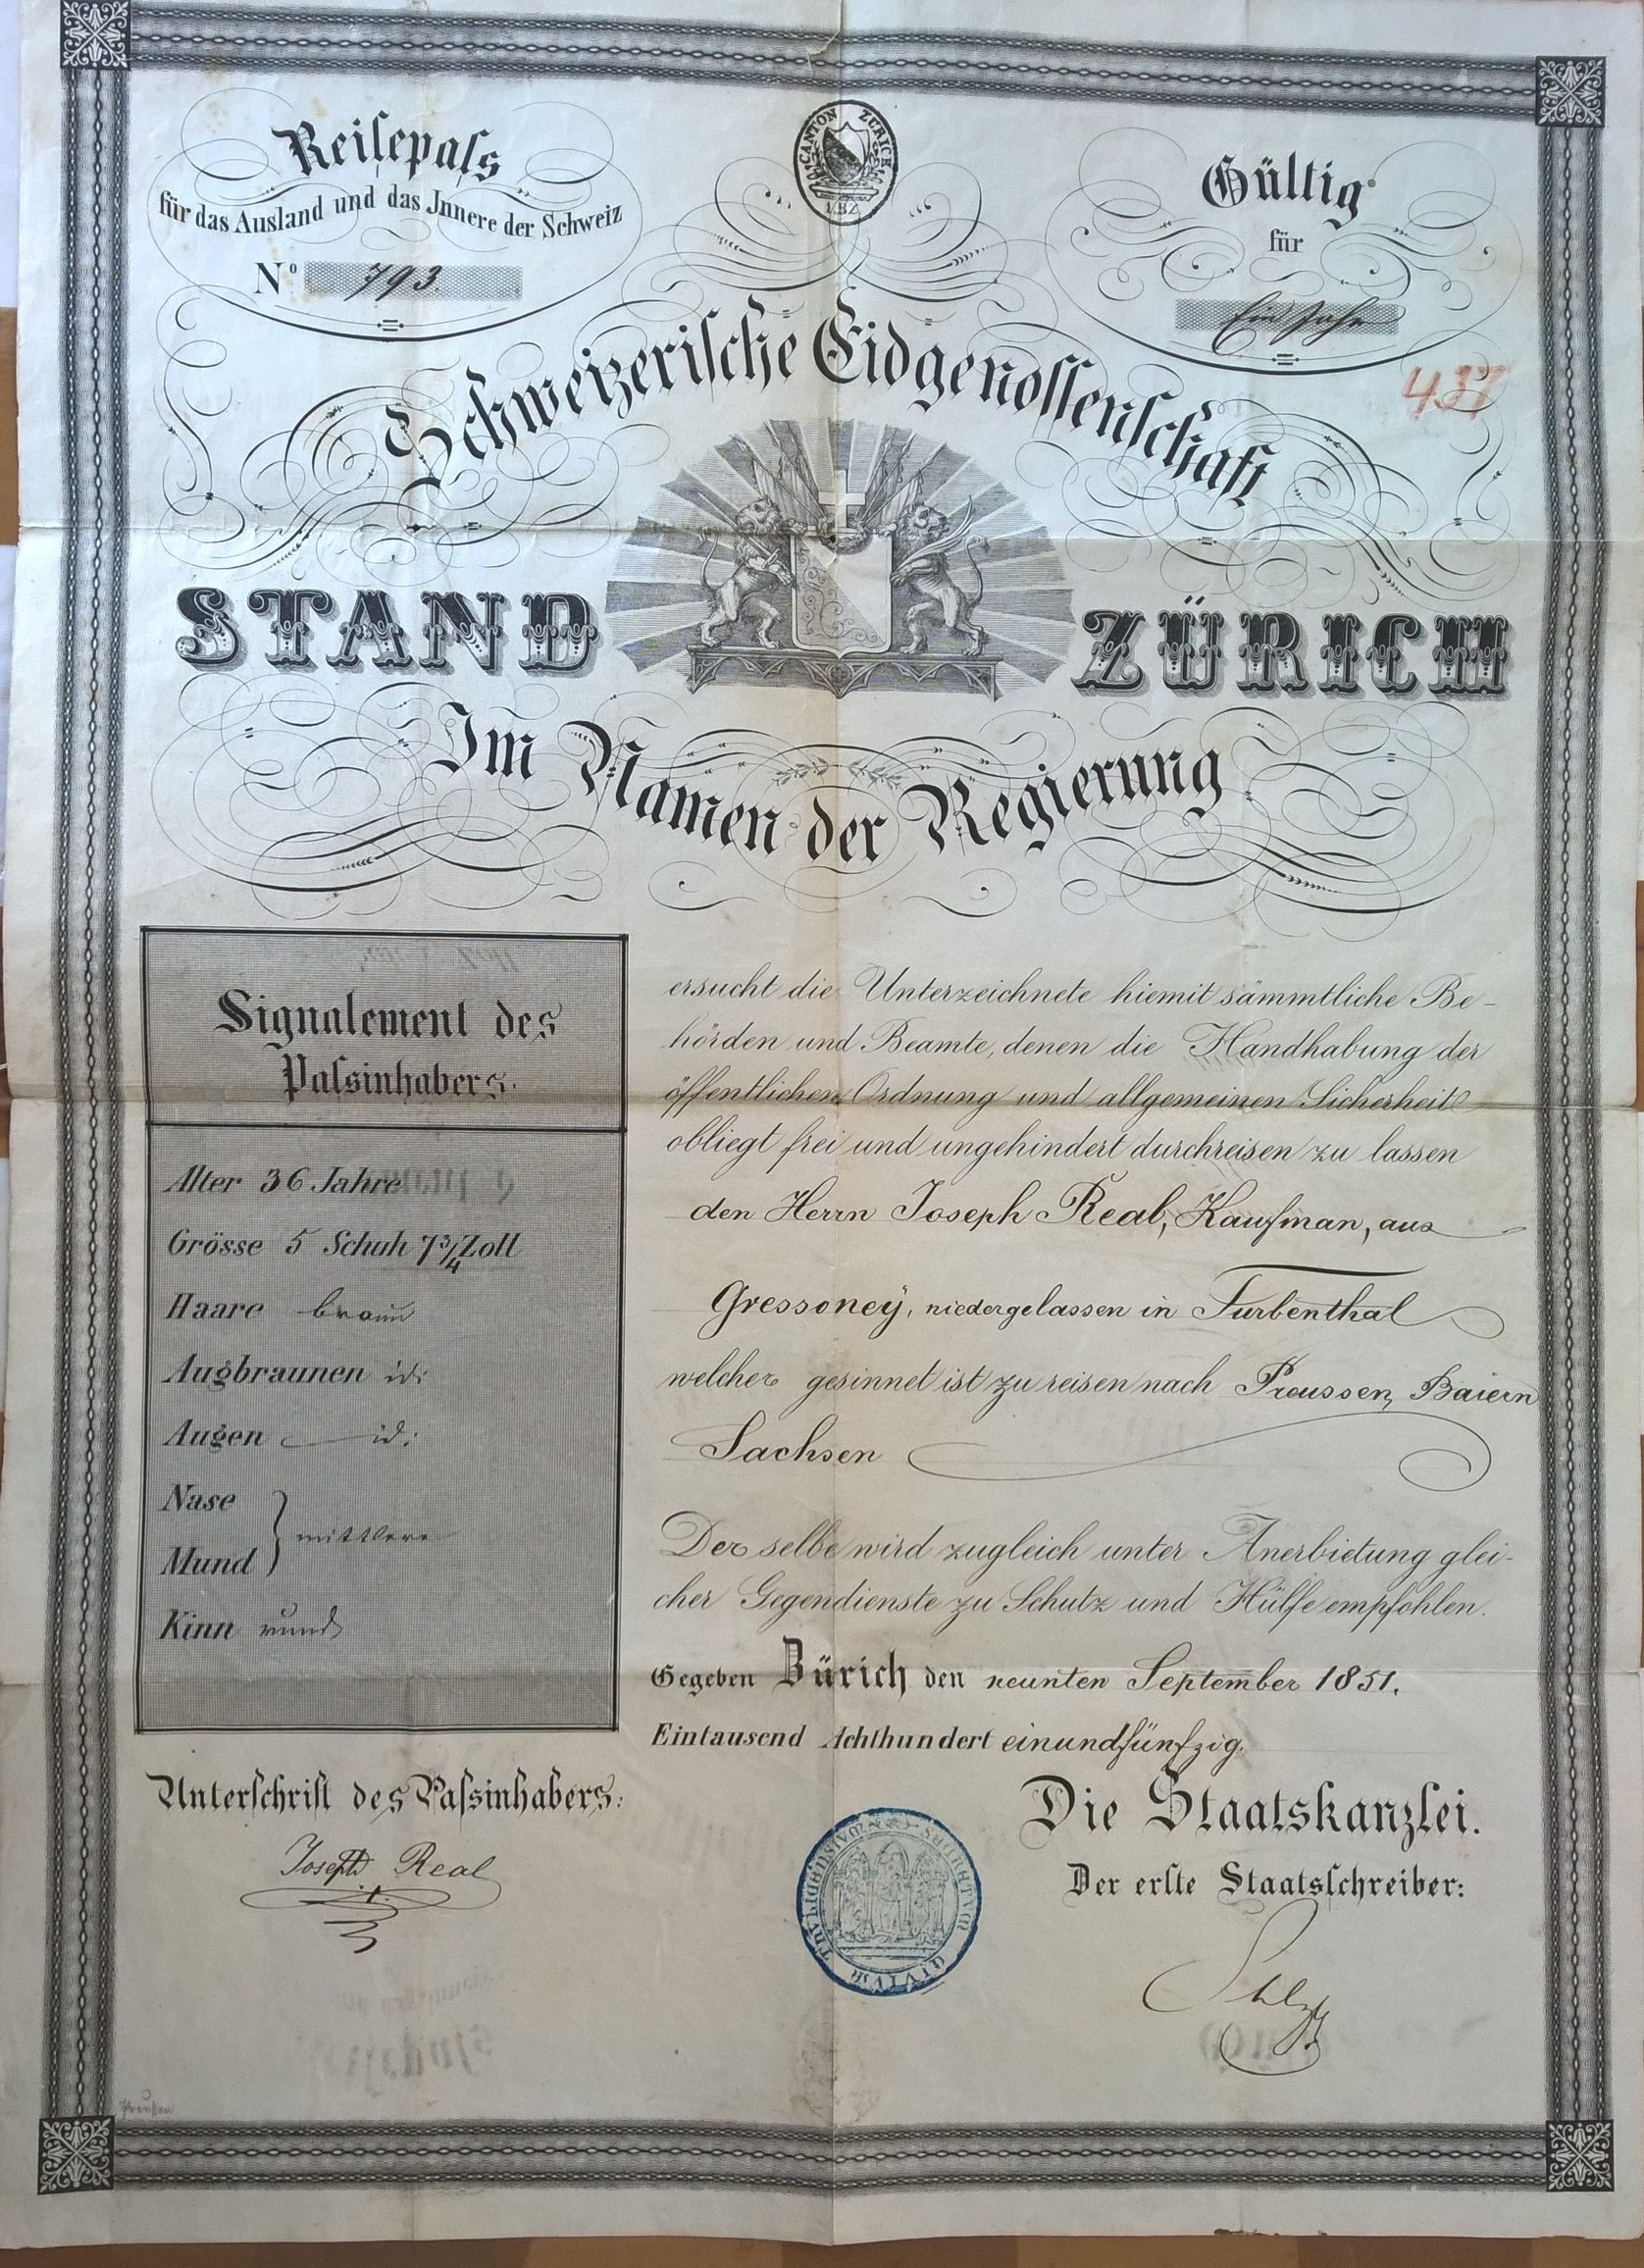 Reiſepaſs
für das Ausland und das Innere der Schweiz
Nº 793.
CANTON ZÜRICH
Gültig
für
Ein Jahr
437
Schweizeriſche Eidgenoſſenſchaft
STAND ZÜRICH
Im Namen der Regierung
Signalement des
Paſsinhabers.
Alter 36 Jahre
Grösse 5 Schuh 7 3/4 Zoll
Haare braun
Augbraunen id:
Augen id:
Nase
Mund } mittlere
Kinn rund
Unterſchrift des Paſsinhabers:
Joseph Real
ersucht die Unterzeichnete hiemit sämmtliche Be-
hörden und Beamte, denen die Handhabung der
öffentlichen Ordnung und allgemeinen Sicherheit
obliegt frei und ungehindert durchreisen zu lassen
den Herrn Joseph Real, Kaufman, aus
Gressoney, niedergelassen in Turbenthal
welcher gesinnet ist zu reisen nach Preussen, Baiern
Sachsen
Der selbe wird zugleich unter Anerbietung glei-
cher Gegendienste zu Schutz und Hülfe empfohlen.
Gegeben Zürich den neunten September 1851.
Eintausend Achthundert einundfünfzig.
Die Staatskanzlei.
Der erſte Staatsſchreiber:
Preußen